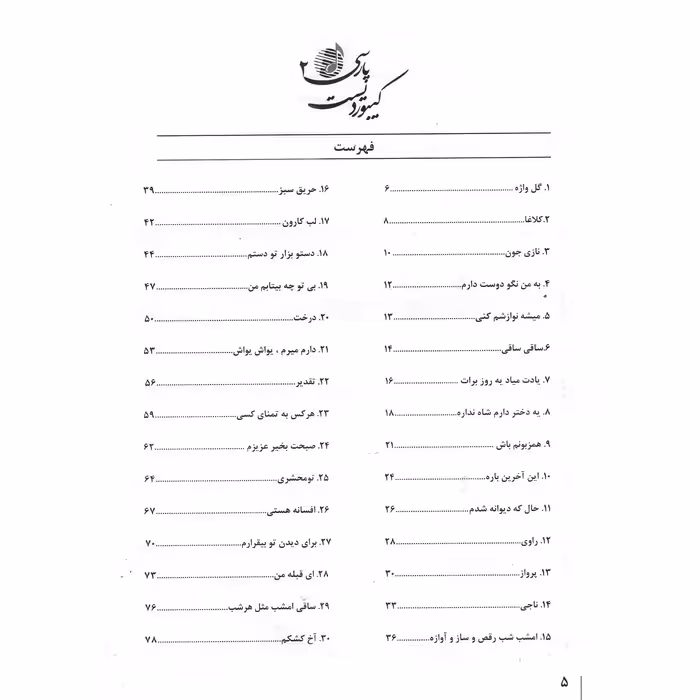 پارسی ۲
کیبوردیست
فهرست
۱. گل واژه ............ ۶
۲.کلاغا............ ۸
۳. نازی جون............ ۱۰
۴. به من نگو دوست دارم............ ۱۲
۵. میشه نوازشم کنی............ ۱۳
۶.ساقی ساقی............ ۱۴
۷. یادت میاد یه روز برات ............ ۱۶
۸. یه دختر دارم شاه نداره............ ۱۸
۹. همزبونم باش ............ ۲۱
۱۰. این آخرین باره............ ۲۴
۱۱. حال که دیوانه شدم............ ۲۶
۱۲. راوی............ ۲۸
۱۳. پرواز............ ۳۰
۱۴. ناجی............ ۳۳
۱۵. امشب شب رقص و ساز و آوازه............ ۳۶
۱۶. حریق سبز............ ۳۹
۱۷. لب کارون ............ ۴۲
۱۸. دستو بزار تو دستم............ ۴۴
۱۹. بی تو چه بیتابم من............ ۴۷
۲۰. درخت............ ۵۰
۲۱. دارم میرم ، یواش یواش............ ۵۳
۲۲. تقدیر............ ۵۶
۲۳. هرکس به تمنای کسی............ ۵۹
۲۴. صبحت بخیر عزیزم ............ ۶۲
۲۵. تومحشری............ ۶۴
۲۶. افسانه هستی............ ۶۷
۲۷. برای دیدن تو بیقرارم............ ۷۰
۲۸. ای قبله من ............ ۷۳
۲۹. ساقی امشب مثل هرشب............ ۷۶
۳۰. آخ کشکم............ ۷۸
۵